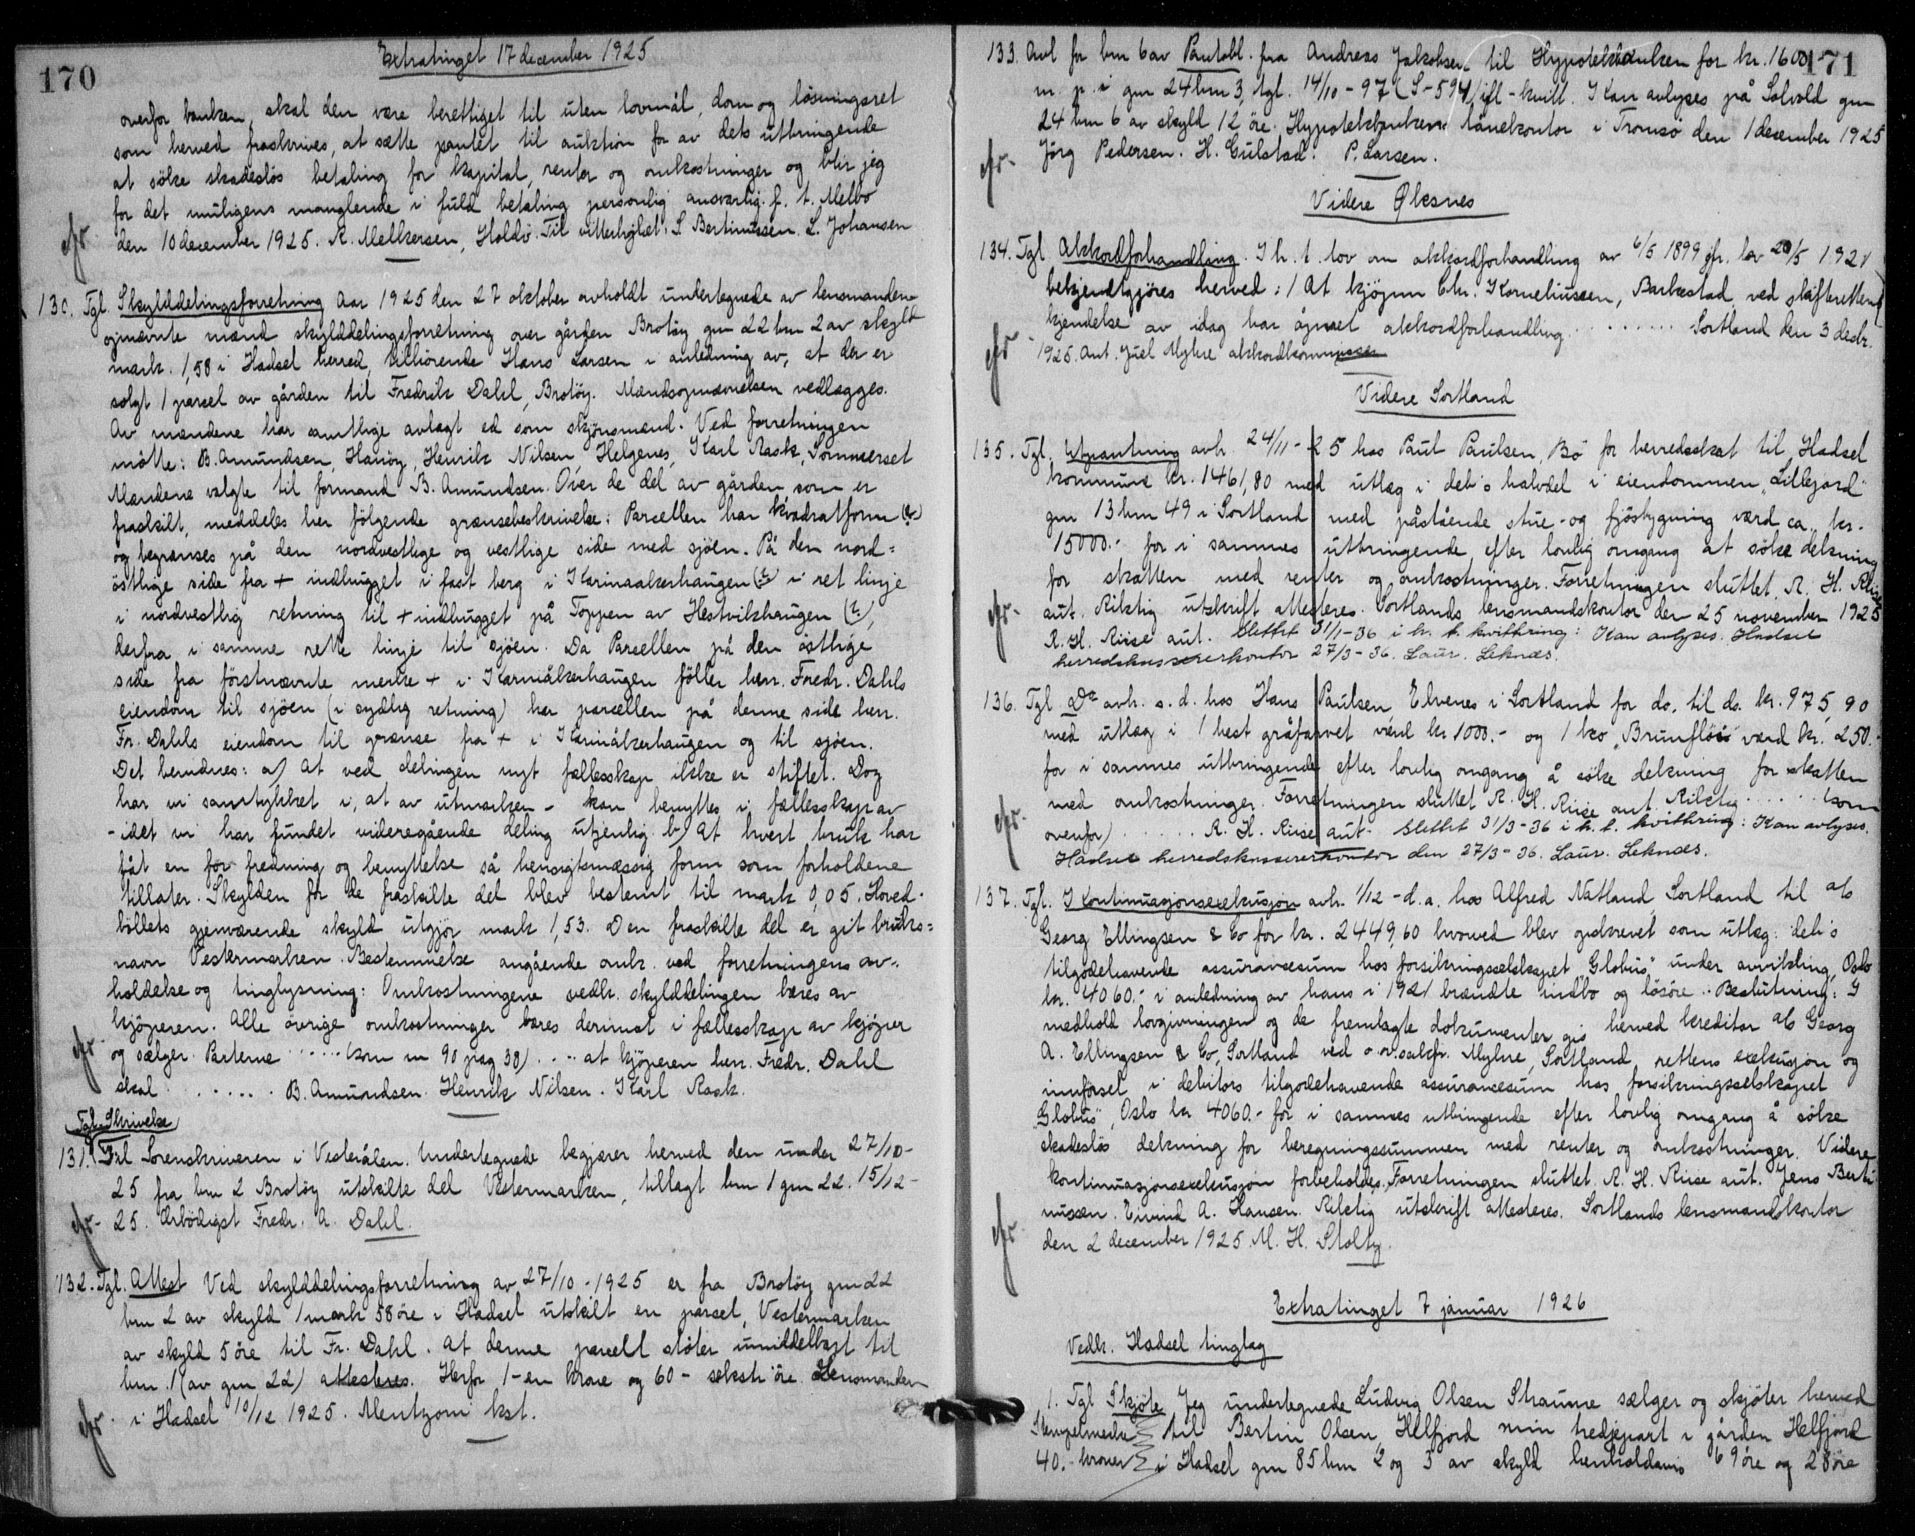 170
Extratinget 17 december 1925
overfor banken, skal den være berettiget til uten lovmål, dom og løsningsret
som herved fraskrives, at sætte pantet til auktion for av dets utbringende
at söke skadeslös betaling for kapital, renter og omkostninger og blir jeg
for det muligens manglende i fuld betaling personlig ansvarlig. p. t. Melbo
den 10 december 1925. R. Melkersen, Holdö. Til vitterlighet: S Bertinussen. L. Johansen
130. Tgl. Skylddelingsforretning Aar 1925 den 27 oktober avholdt undertegnede av lensmanden
opnævnte mænd skylddelingsforretning over gården Brotöy gnr 22 brn 2 av skyld
mark. 1,58 i Hadsel herred, tilhörende Hans Larsen i anledning av, at der er
solgt 1 parsel av gården til Fredrik Dahl, Brotöy. Mændsopnævnelsen vedlægges.
Av mændene har samtlige avlagt ed som skjönsmænd. Ved forretningen
mötte: B. Amundsen, Hanöy, Henrik Nilsen, Helgenes, Karl Rask, Sommerset
Mændene valgte til formand B. Amundsen. Over de del av gården, som er
fraskilt, meddeles her fölgende grænsebeskrivelse: Parcellen har kvadratform
og begrænses på den nordvestlige og vestlige side med sjöen. På den nord=
östlige side fra + indhugget i fast berg i Karinaakerhaugen i ret linje
i nordvestlig retning til + indhugget på Toppen av Hestvikhaugen
derfra i samme rette linje til sjöen. Da Parcellen på den östlige
side fra förstnævnte merke + i Karinåkerhaugen föller herr. Fredr. Dahls
eiendom til sjöen (i sydlig retning) har parcellen på denne side herr.
Fr. Dahls eiendom til grænse fra + i Karinåkerhaugen og til sjöen.
Det bemerkes: a) At ved delingen nyt fællesskap ikke er stiftet. Dog
har vi samtykket i, at av utmarken - kan benyttes i fællesskap av
- idet vi har fundet videregående deling utjenlig. b) At hvert bruk har
fåt en for fredning og benyttelse så hensigtsmæssig form som forholdene
tillater. Skylden for de fraskilte del blev bestemt til mark 0,05. Hoved-
böllets gjenværende skyld utgjör mark 1,53. Den fraskilte del er git bruks=
navn Vestermarken. Bestemmelse angående omk. ved forretningens av-
holdelse og tinglysning: Omkostningene vedkr. skylddelingen bæres av
kjöperen. Alle övrige omkostninger bæres derimot i fællesskap av kjöper
og sælger. Parterne ...... (som nr 90 pag 38) .... at kjöperen herr. Fredr. Dahl
skal ....... B. Amundsen. Henrik Nilsen. Karl Rask.
Tgl. Skrivelse
131. Til Sorenskriveren i Vesterålen. Undertegnede begjærer herved den under 27/10-
25 fra brn 2 Brotöy utskilte del Vestermarken, tillagt brn 1 gnr 22. 15/12-
25. Ærbödigst Fredr. A. Dahl.
132. Tgl. Attest Ved skylddelingsforretning av 27/10-1925 er fra Brotöy gnr 22
brn 2 av skyld 1 mark 58 öre i Hadsel utskilt en parsel, Vestermarken
av skyld 5 öre til Fr. Dahl. At denne parcell stöter umiddelbart til
brn. 1 (av gnr 22) attesteres. Herfor 1-en krone og 60 - seksti öre Lensmanden
i Hadsel 10/12 1925. Mentzoni kst.
171
133. Avl for brn 6 av Pantobl. fra Andreas Jakobsen til Hypotekbanken for kr. 1600.-
m. p. i gnr 24 brn 3, tgl. 14/10-97 (S-594) ifl-kvitt. Kan avlyses på Solvold gnr
24 brn 6 av skyld 12 öre. Hypotekbankens lånekontor i Tromsö den 1 december 1925
Jörg Pedersen. H. Gulstad. P. Larsen.
Videre Øksnes
134. Tgl. Akkordforhandling. I h. t. lov om akkordforhandling av 6/5 1899 jfr. lov 20/5 1921
bekjendtgjöres herved: / At kjöpm Chr. Korneliussen, Barkestad, ved skifterettens
kjendelse av idag har åpnet akkordforhandling. ........ Sortland den 3 desbr.
1925. Ant. Juel Myhre akkordkommissær
Videre Sortland
135. Tgl. Utpantning avh. 24/11-25 hos Paul Paulsen, Bö for herredsskat til Hadsel
kommune kr. 1461,80 med utlæg i deb's halvdel i eiendommen „Lillejord"
gnr 13 brn 49 i Sortland med påstående stue- og fjösbygning værd ca. kr.
15000.- for i sammes utbringende, efter lovlig omgang at söke dekning
for skatten med renter og omkostninger. Forretningen sluttet. R. H. Riise
aut. Riktig utskrift attesteres. Sortlands lensmandskontor den 25 november 1925
R. H. Riise aut. Slettet 31/1-36 i h. t. kvittring: Kan avlyses. Hadsel
herredskassererkontor 27/3-36. Laur. Leknes.
136. Tgl Do avh. s. d. hos Hans Paulsen, Elvenes i Sortland for do. til do. kr. 975,90
med utlæg i 1 hest gråfarvet værd kr 1000.- og 1 ko „Brunflöi" værd kr. 250.-
for i sammes utbringende efter lovlig omgang å söke dekning for skatten
med omkostninger. Forretningen sluttet R. H. Riise aut. Riktig ..... (som
ovenfor) ...... R. H. Riise aut. Slettet 31/3-36 i h. t. kvittring: Kan avlyses.
Hadsel herredskassererkontor den 27/3-36. Laur. Leknes.
137. Tgl. Kontinuasjonseksekusjon avh. 1/12-d.a. hos Alfred Natland, Sortland til a/s
Georg Ellingsen & Co for kr. 2449,60 hvorved blev opskrevet som utlæg: deb's
tilgodehavende assurancesum hos forsikringsselskapet „Globus" under avvikling, Oslo
kr. 4060.- i anledning av hans i 1921 brændte indbo og lösöre. Beslutning: I
medhold lovgivningen og de fremlagte dokumenter gis herved kreditor a/s Georg
A. Ellingsen & Co, Sortland ved o.r.sakfr. Myhre, Sortland, rettens exekusjon og
innforsel i debitors tilgodehavende assurancesum hos forsikringsselskapet
„Globus", Oslo kr 4060.- for i sammes utbringende efter lovlig omgang å söke
skadeslös dekning for beregningssummen med renter og omkostninger. Videre
kontinuasjonsexekusjon forbeholdes. Forretningen sluttet. R. H. Riise aut. Jens Berti
nussen. Eivind A. Hansen. Riktig utskrift attesteres. Sortlands lensmandskontor
den 2 december 1925 M. H. Stolty.
Extratinget 7 januar 1926
Vedkr. Hadsel tinglag
1. Tgl Skjöte Jeg undertegnede Ludvig Olsen Straume sælger og skjöter herved
Stempelmerke til Bertin Olsen, Helfjord min tredjepart i gården Helfjord
40.- kroner i Hadsel gnr 85 brn 2 og 3 av skyld henholdsvis 69 öre og 28 öre